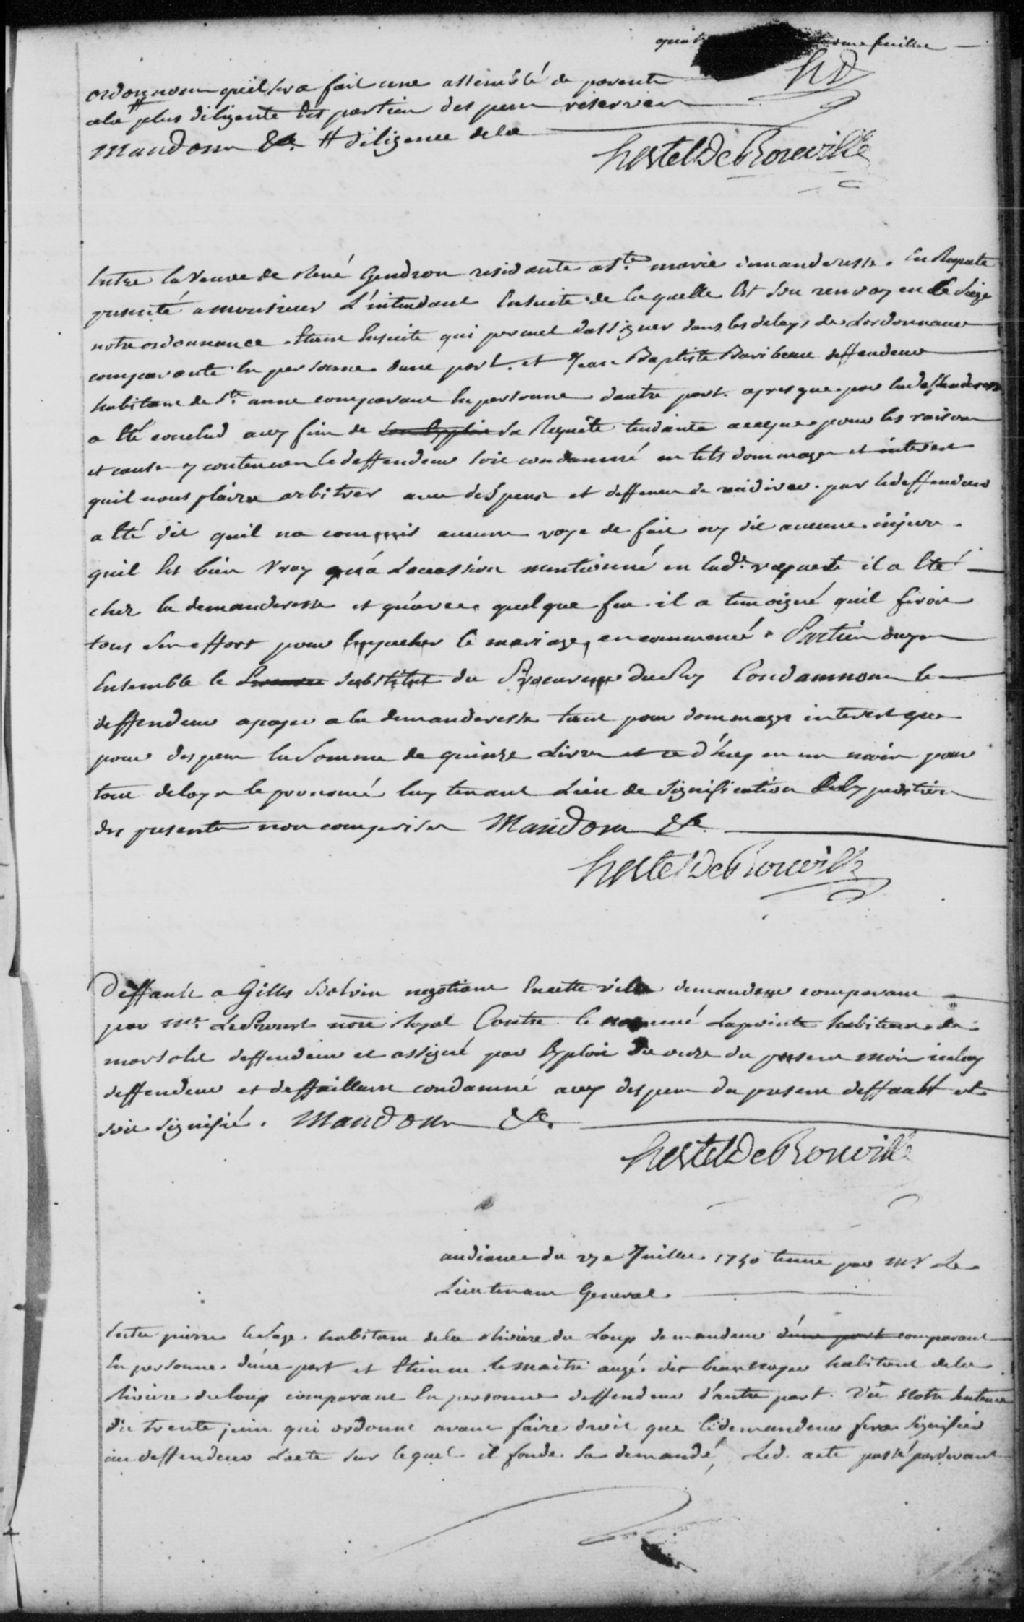 ordonnons quil sera fait une assemblé de parents
a la plus diligente des parties despens reservés
Mandons &a. # diligence de la
hertel De Rouville
Entre la veuve de René Gendron residante a ste. marie demanderesse en Requete
presenté a monsieur L'intendant Ensuite de laquelle Est son renvoy en ce siege
notre ordonnance Etant Ensuite qui permet dassigner dans les delays de Lordonnance
comparante en personne dune part. et Jean Baptiste Baribeau deffendeur
habitant de Ste. anne comparant En personne dautre part. apres que par la deffenderesse
a Eté conclud aux fins de sa Requête tendante a ce que pour les raisons
et causes y contenues le deffendeur soit condamné en tels dommages et interest
quil nous plaira arbitrer avec despens et deffences de recidiver. par le deffendeur
a Eté dit quil na commis aucune voye de fait ny dit aucune injure
quil Est bien vray qu'a Loccassion mentionné en lad. requete il a Eté
chez la demanderesse et qu'avec quelque feu il a temoigné quil feroit
tous ses effort pour Empecher le mariage encommencé. Parties ouyes
Ensemble le substitut du Procureur du Roy Condamnons le
deffendeur a payer a la demanderesse tant pour dommages interest que
pour despens la Somme de quinze Livres et ce d'huy en un mois pour
tout delay le prononcé luy tenant Lieu de signification
des presentes non comprises Mandons &a
hertel De Rouville
Deffault a Gilles Bolvin negotiant En cette ville demandeur comparant
par Mr. LeProust nore Royal Contre le nommé Lapointe habitant de
deffendeur et assigné par Exploit du onze du present mois iceluy
deffendeur et deffaillant condamné aux despens du present deffault et
soit signifié. Mandons &a.
hertel De Rouville
audiance du 27e Juillet 1750 tenue par Mr. Le
Lieutenant General
Entre pierre Lesage habitant de la Riviere du Loup demandeur d'une part comparant
En personne d'une part et Etienne le maitre augé habitant de la
Riviere du loup comparant En personne deffendeur d'autre part. Vû Notre sentence
du trente juin qui ordonne avant faire droit que le demandeur fera signifier
au deffendeur L'acte sur lequel il fonde sa demande, Led. acte passé pardevant